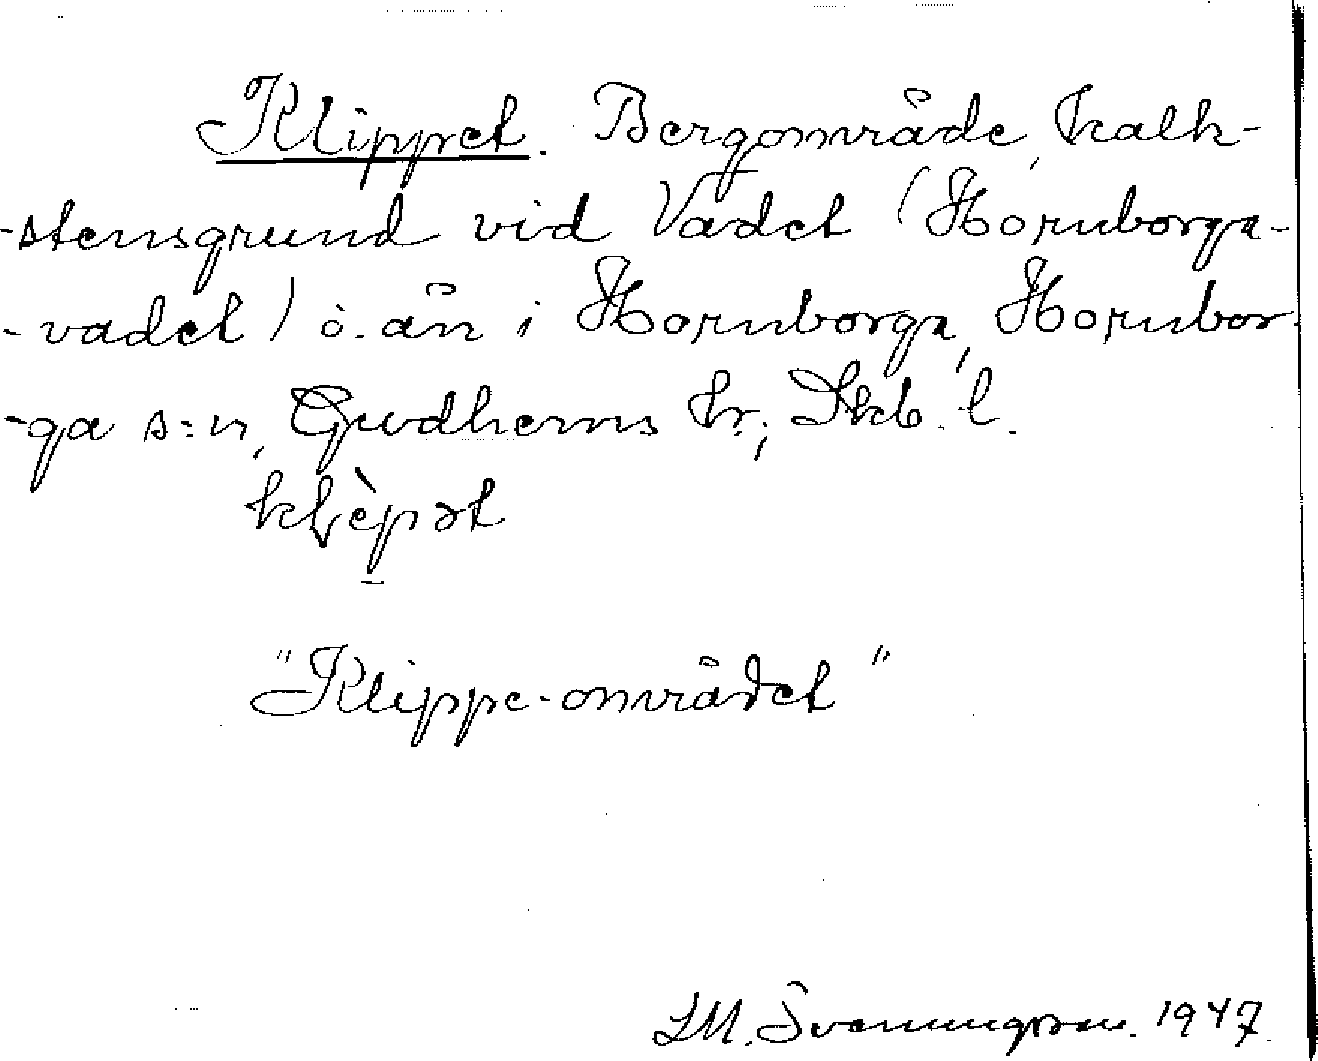 Klippet. Bergområde, kalk-
-stensgrund vid Vadet (Hornborga-
-vadet) ö. ån i Hornborga, Hornbor-
-ga s:n, Gudhems hr; Skb. l.
klèpət
"Klippe-området"
LM. Svenungsson. 1947.